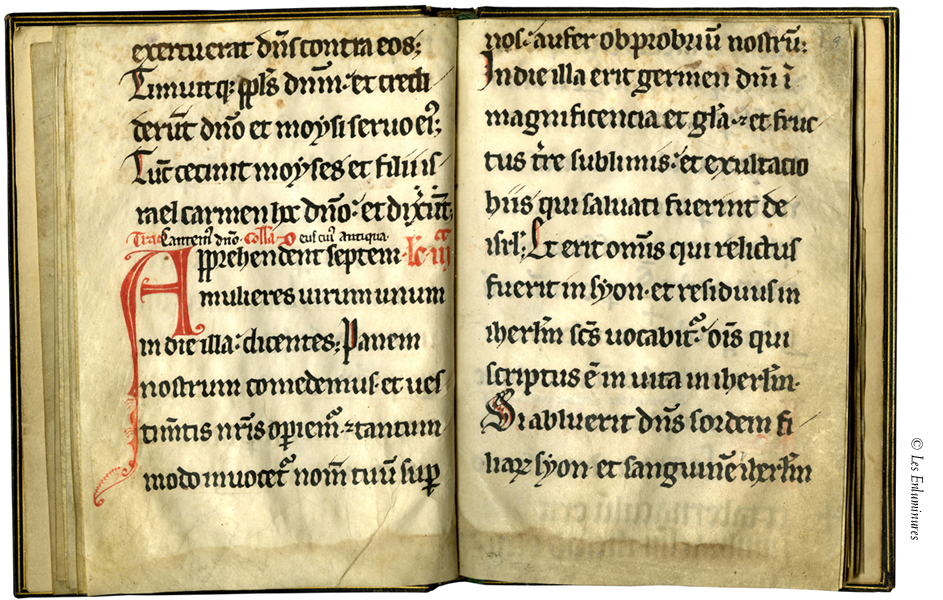 exercuerat dn̄s contra eos;
Timuitq; ppl̄s dnm̄· et credi
derūt dn̄o et moysi seruo ei᾽;
Tūc cecinit moyses et filii is
rahel carmen hoc dn̄o· et dixer̄t;
Trac Cantem᾽ dn̄o· Coll̄a O
antiqua·
Apprehendent septem· lc̄ iij
mulieres uirum unum
in die illa· dicentes; Panem
nostrum comedemus· et ues
tim̄tis nr̄is op̄iem᾽· ⁊ tantum
modo inuocet᾽ nom̄ tuū sup̄
nos· aufer obprobriū nostrū;
In die illa erit germen dn̄i ī
magnificencia et gl̄a· et fruc
tus tr̄e sublimis· et exultacio
hiis qui saluati fuerint de
isrl̄; Et erit omīs qui relictus
fuerit in syon· et residuus in
iherlm̄ sc̄s uocabit᾽· oīs qui
scriptus ē in uita in iherlm̄·
Si abluerit dn̄s sordem fi
liaꝝ syon· et sanguinē iherlm̄
© Les Enluminures